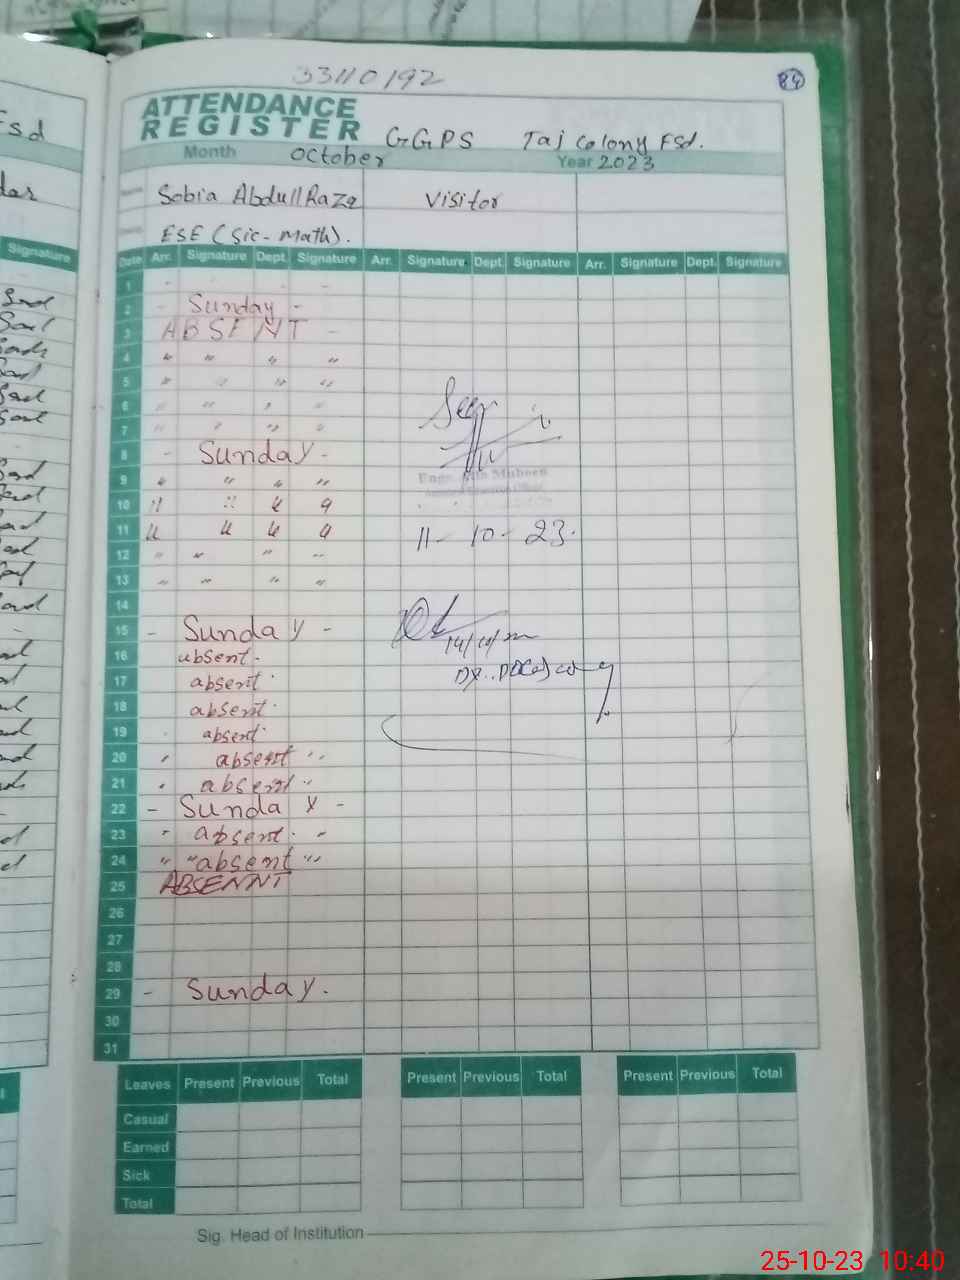 33110192
84
ATTENDANCE
REGISTER
GGPS Taj Colony Fsd.
Month October Year 2023
Sobia Abdull Razaq Visitor
ESE (Sic-Math).
Date Arr. Signature Dept. Signature Arr. Signature Dept. Signature Arr. Signature Dept. Signature
1
2 - Sunday -
3 ABSENT -
4 " " " "
5 " " " "
6 " " " "
7 " " " "
8 - Sunday -
9 " " " "
10 " " " "
11 " " " " 11-10-23.
12 " " " "
13 " " " "
14
15 - Sunday -
16 absent.
17 absent.
18 absent.
19 absent.
20 " absent "
21 " absent "
22 - Sunday -
23 " absent. "
24 " "absent "
25 ABSENNT
26
27
28
29 - Sunday.
30
31
Leaves Present Previous Total Present Previous Total Present Previous Total
Casual
Earned
Sick
Total
Sig. Head of Institution
Fsd
Signature
25-10-23 10:40